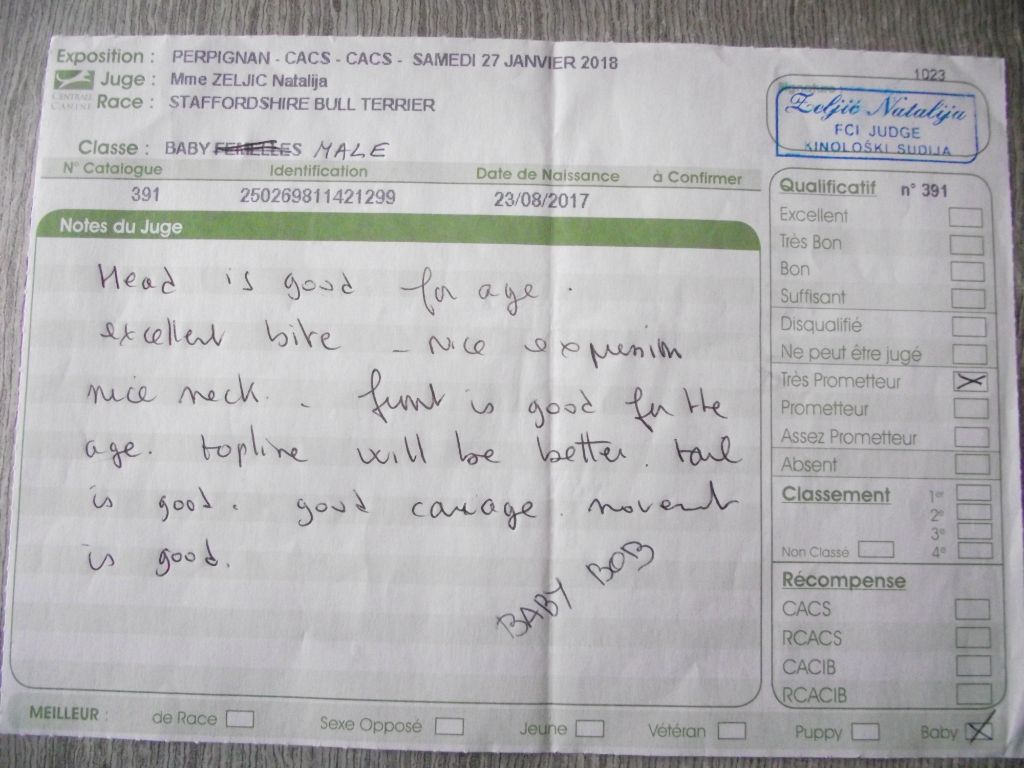 Exposition : PERPIGNAN - CACS - CACS - SAMEDI 27 JANVIER 2018
Juge : Mme ZELJIC Natalija
CENTRALE CANINE
Race : STAFFORDSHIRE BULL TERRIER
Classe : BABY FEMELLES MALE
1023
Zeljić Natalija
FCI JUDGE
KINOLOŠKI SUDIJA
N° Catalogue Identification Date de Naissance à Confirmer
391 250269811421299 23/08/2017
Notes du Juge
Head is good for age.
excellent bite - nice expression
nice neck. - front is good for the
age. topline will be better. tail
is good. good carriage. movement
is good.
BABY BOB
Qualificatif n° 391
Excellent
Très Bon
Bon
Suffisant
Disqualifié
Ne peut être jugé
Très Prometteur X
Prometteur
Assez Prometteur
Absent
Classement 1er
2e
3e
Non Classé 4e
Récompense
CACS
RCACS
CACIB
RCACIB
MEILLEUR : de Race Sexe Opposé Jeune Vétéran Puppy Baby X